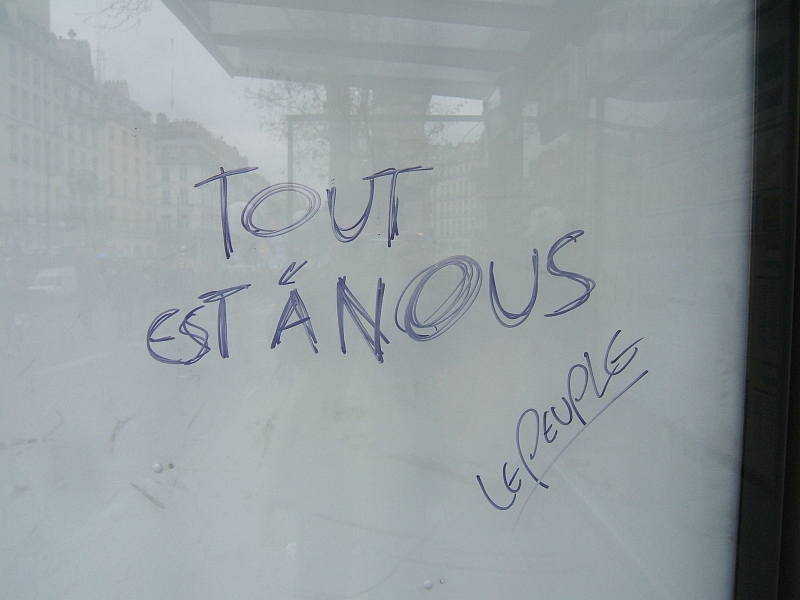 TOUT
EST Á NOUS
LE PEUPLE